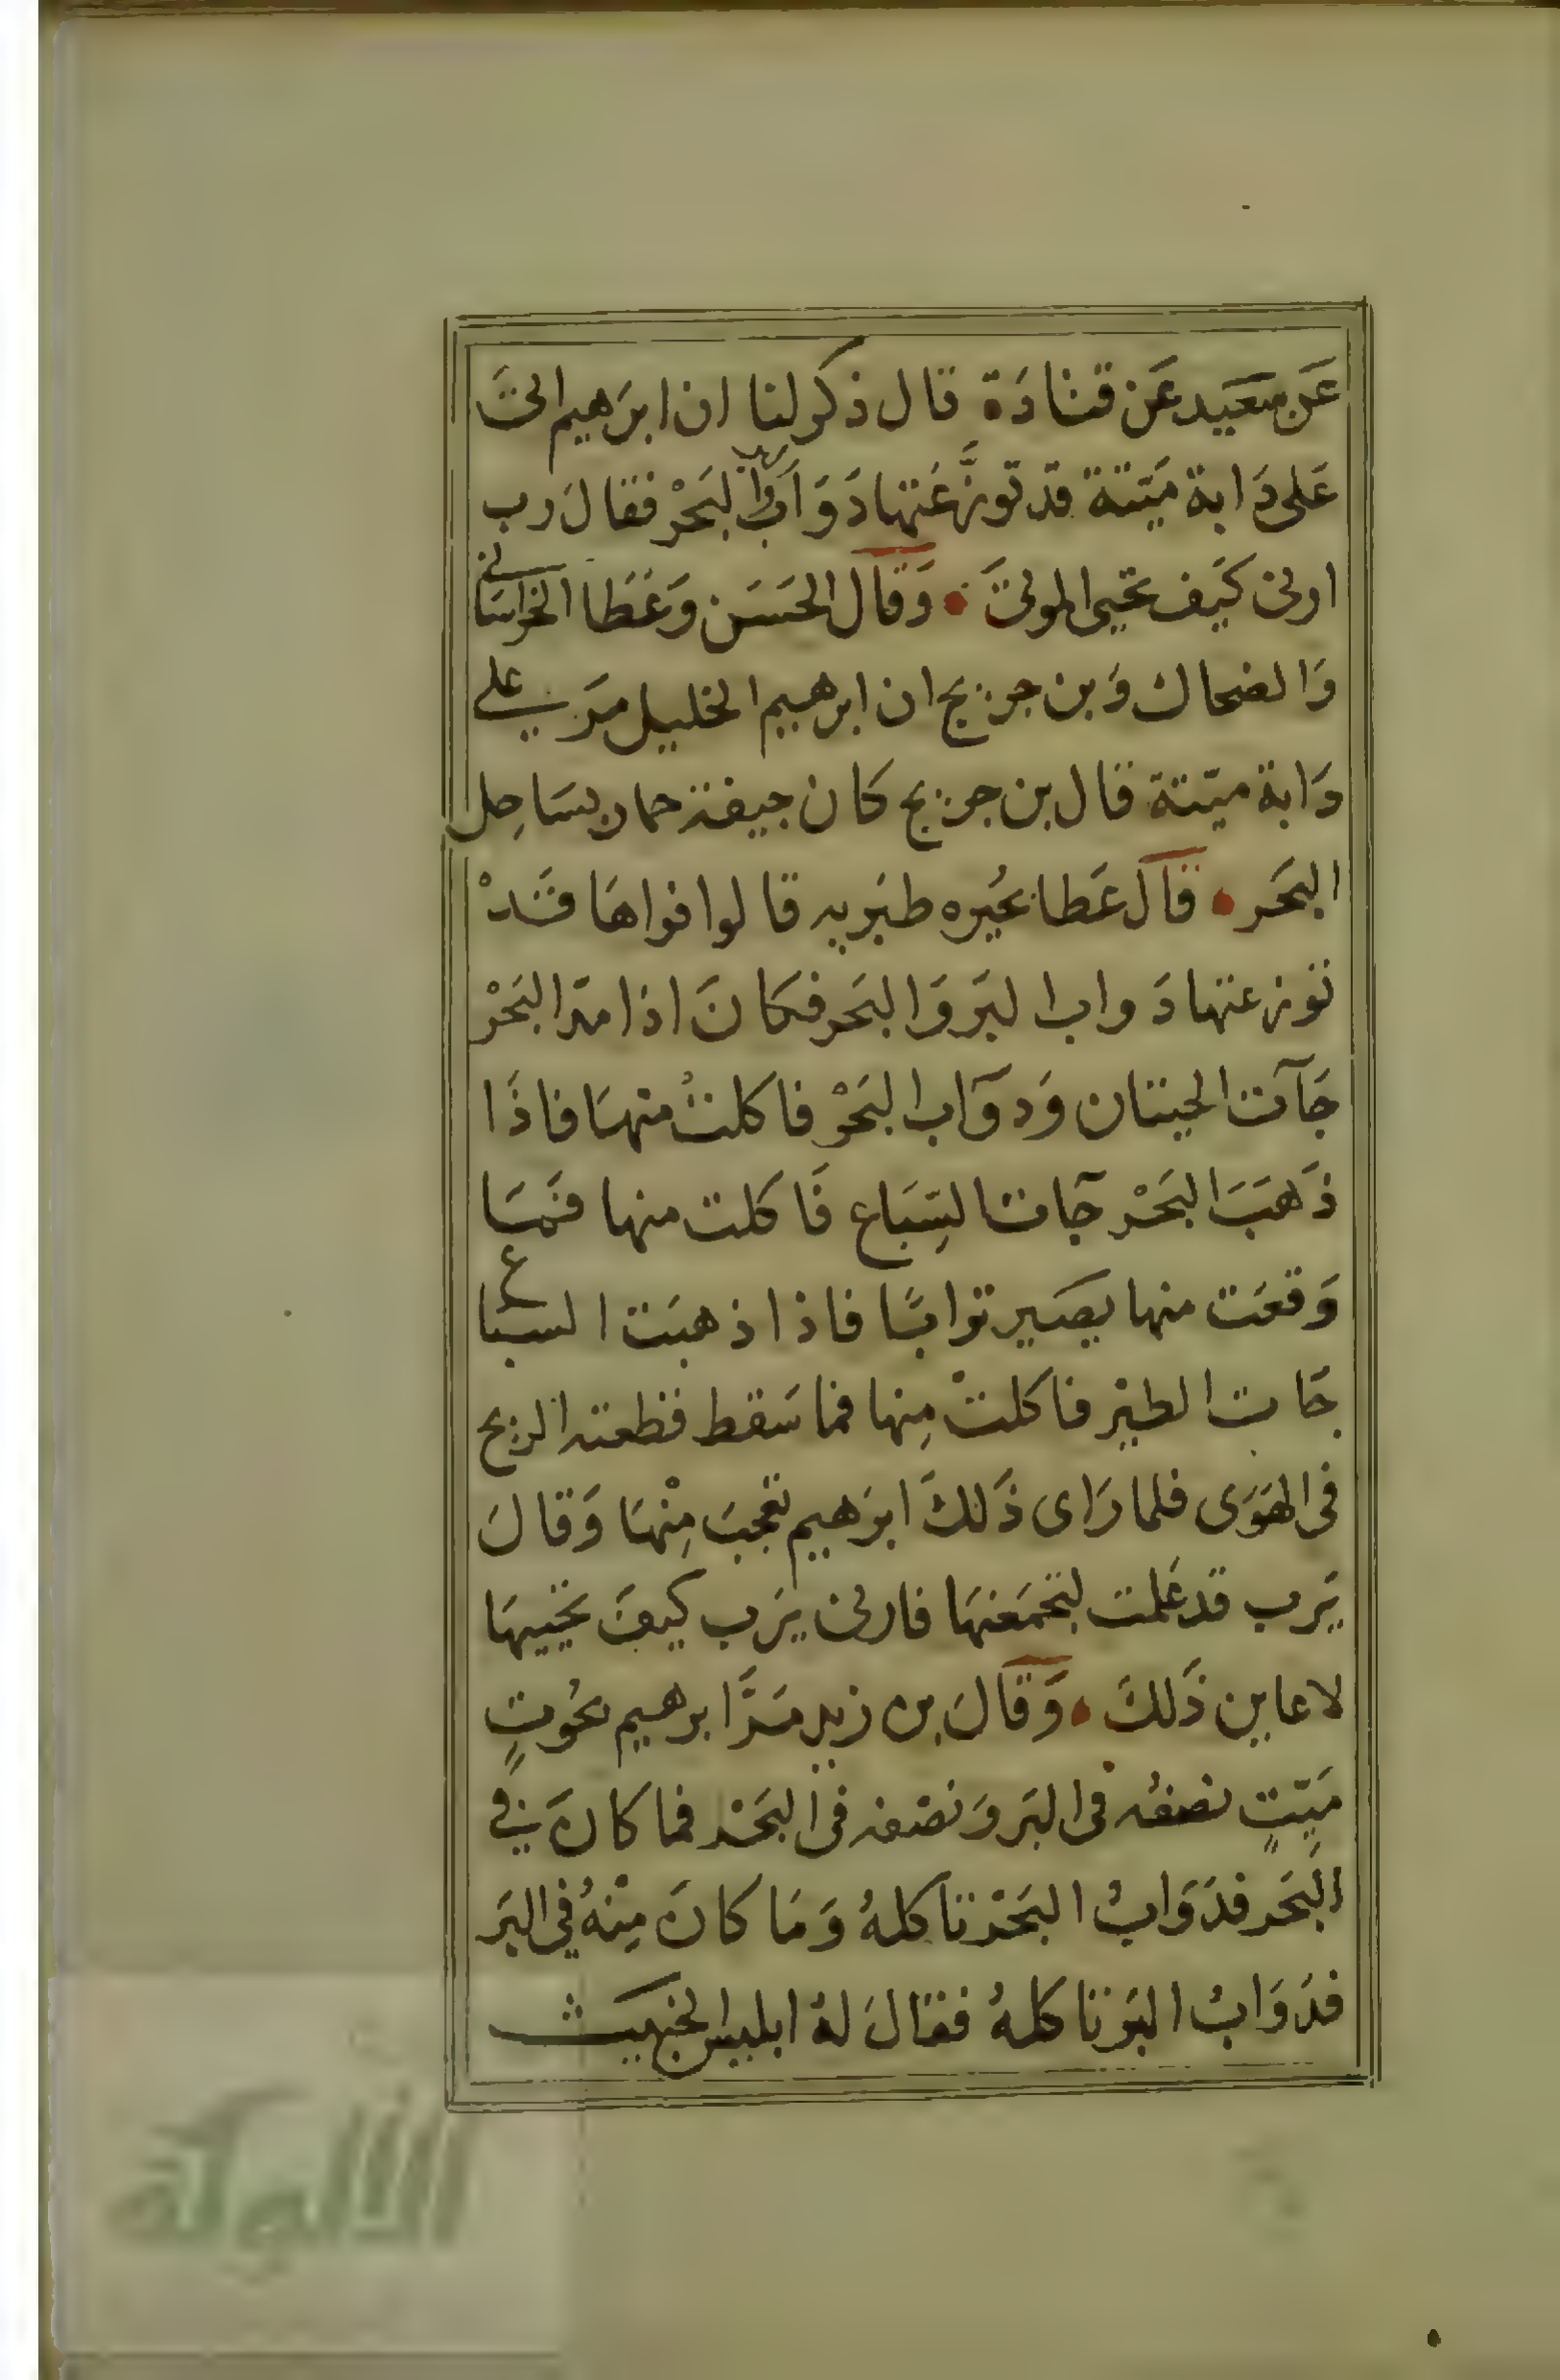 عَن سَعَيد عَن قتادَة قال ذكر لنا ان ابرَهيم اتى
عَلى دَابة مَيّتة قد توزَّعَتها دَوَآب البَحْر فقالَ رب
ارنى كَيَف تحيى الموتىَ وَقاَل الحَسَن وَعَطَا الخراسَانى
وَالضحاك وَبن جريج ان ابرهيم الخليل مرَ على
دَابة ميّتة قال بن جريج كان جيفة حمار بسَاحِل
البحَر قاَل عَطا بحُيره طبَريه قالوا فراهَا قَدْ
توزعتها دَواب البَر وَالبحَر فكانَ اذا مدّ البَحْر
جَآت الحيتان وَدوَآب البَحْر فاكلتْ منها فاذَا
ذَهبَ البَحْر جَآت السِّبَاع فَاكلت منها فمَا
وَقعَت منها يصَير ترابًا فاذا ذهبَت السباع
جَات الطيْر فاكلتْ مِنها فما سَقط قطعته الريح
فى الهَوَى فلما رَاى ذَلكَ ابرَهيم تعجبَ مِنْهَا وَقالَ
يَرب قد عَلمت لتجمَعنهَا فارنى يَرب كيفَ تحييهَا
لاعاين ذَلكَ وَقاَلَ بن زيد مَرَّ ابرهيم بحُوتٍ
مَيّتٍ نصفُه فى البَر وَنصْفه فى البَحْر فما كانَ في
البَحَر فدَوَابُ البَحْر تاكلهُ وَمَا كانَ مِنْهُ فِي البَر
فدَوَابُ البَر تاكلهُ فقالَ لهُ ابليس الخبيث
الألوكة